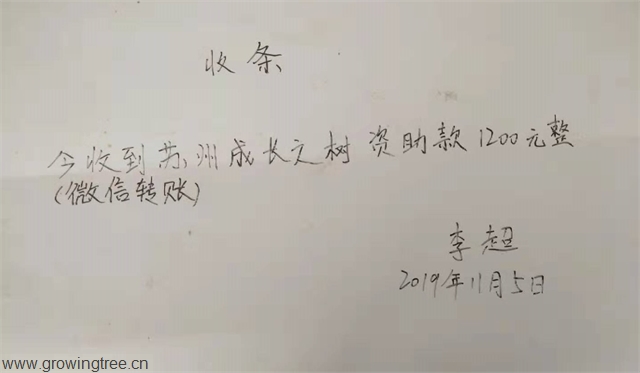 收条
今收到苏州成长之树资助款1200元整
(微信转账)
李超
2019年11月5日
www.growingtree.cn